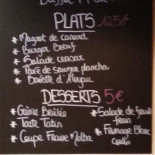 PLATS 12,5€
Magret de canard
Burger Boeuf
Salade canard
Pavé de saumon plancha
Bavette d'Aloyau
DESSERTS 5€
Crème Brûlée
Tarte Tatin
Coupe Fraise Melba
Salade de fruits
frais
Fromage Blanc
coulis